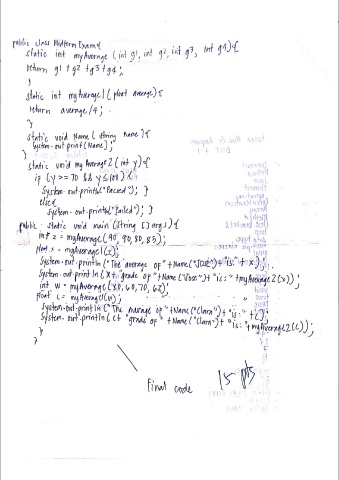 public class Midterm Exam {
static int myAverage (int g1, int g2, int g3, int g4) {
return g1 + g2 + g3 + g4;
}
static int myAverage1 (float average) {
return average/4;
}
static void Name ( String name ) {
System.out.print (Name) ;
}
static void myAverage2 (int y) {
if (y >= 70 && y ≤ 100) {
System.out.println ("Passed"); }
else {
System.out.println ("Failed"); }
public static void main (String [] args) {
int z = myAverage (90, 90, 80, 80);
float x = myAverage1 (z);
System.out.println ("The average of " + Name ("Jose") + "is: " + x);
System.out.println (x + "grade of " + Name ("Jose") + "is: " + myAverage2 (x));
int w = myAverage (80, 60, 70, 62);
float c = myAverage1 (w);
System.out.println ("The average of " + Name ("Clara") + "is: " + c);
System.out.println (c + "grade of " + Name ("Clara") + "is: " + myAverage2 (c));
}
}
Final code
15 pts